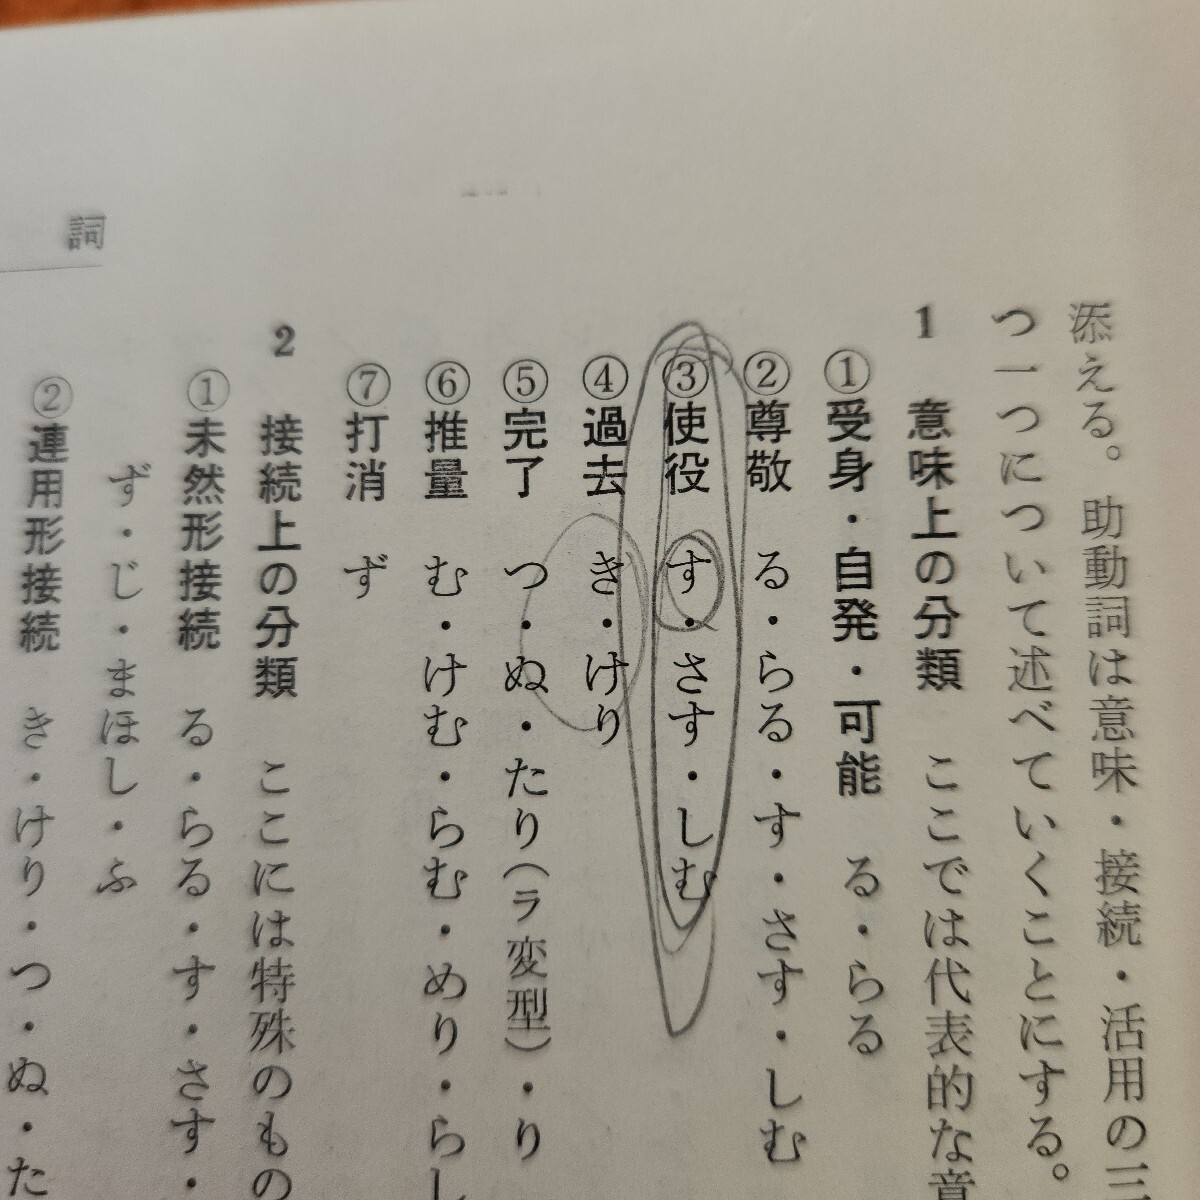 添える。助動詞は意味・接続・活用の三
つ一つについて述べていくことにする。
1 意味上の分類 ここでは代表的な意
①受身・自発・可能 る・らる
②尊敬 る・らる・す・さす・しむ
③使役 す・さす・しむ
④過去 き・けり
⑤完了 つ・ぬ・たり(ラ変型)・り
⑥推量 む・けむ・らむ・めり・らし
⑦打消 ず
2 接続上の分類 ここには特殊のもの
①未然形接続 る・らる・す・さす・
ず・じ・まほし・ふ
②連用形接続 き・けり・つ・ぬ・た
詞